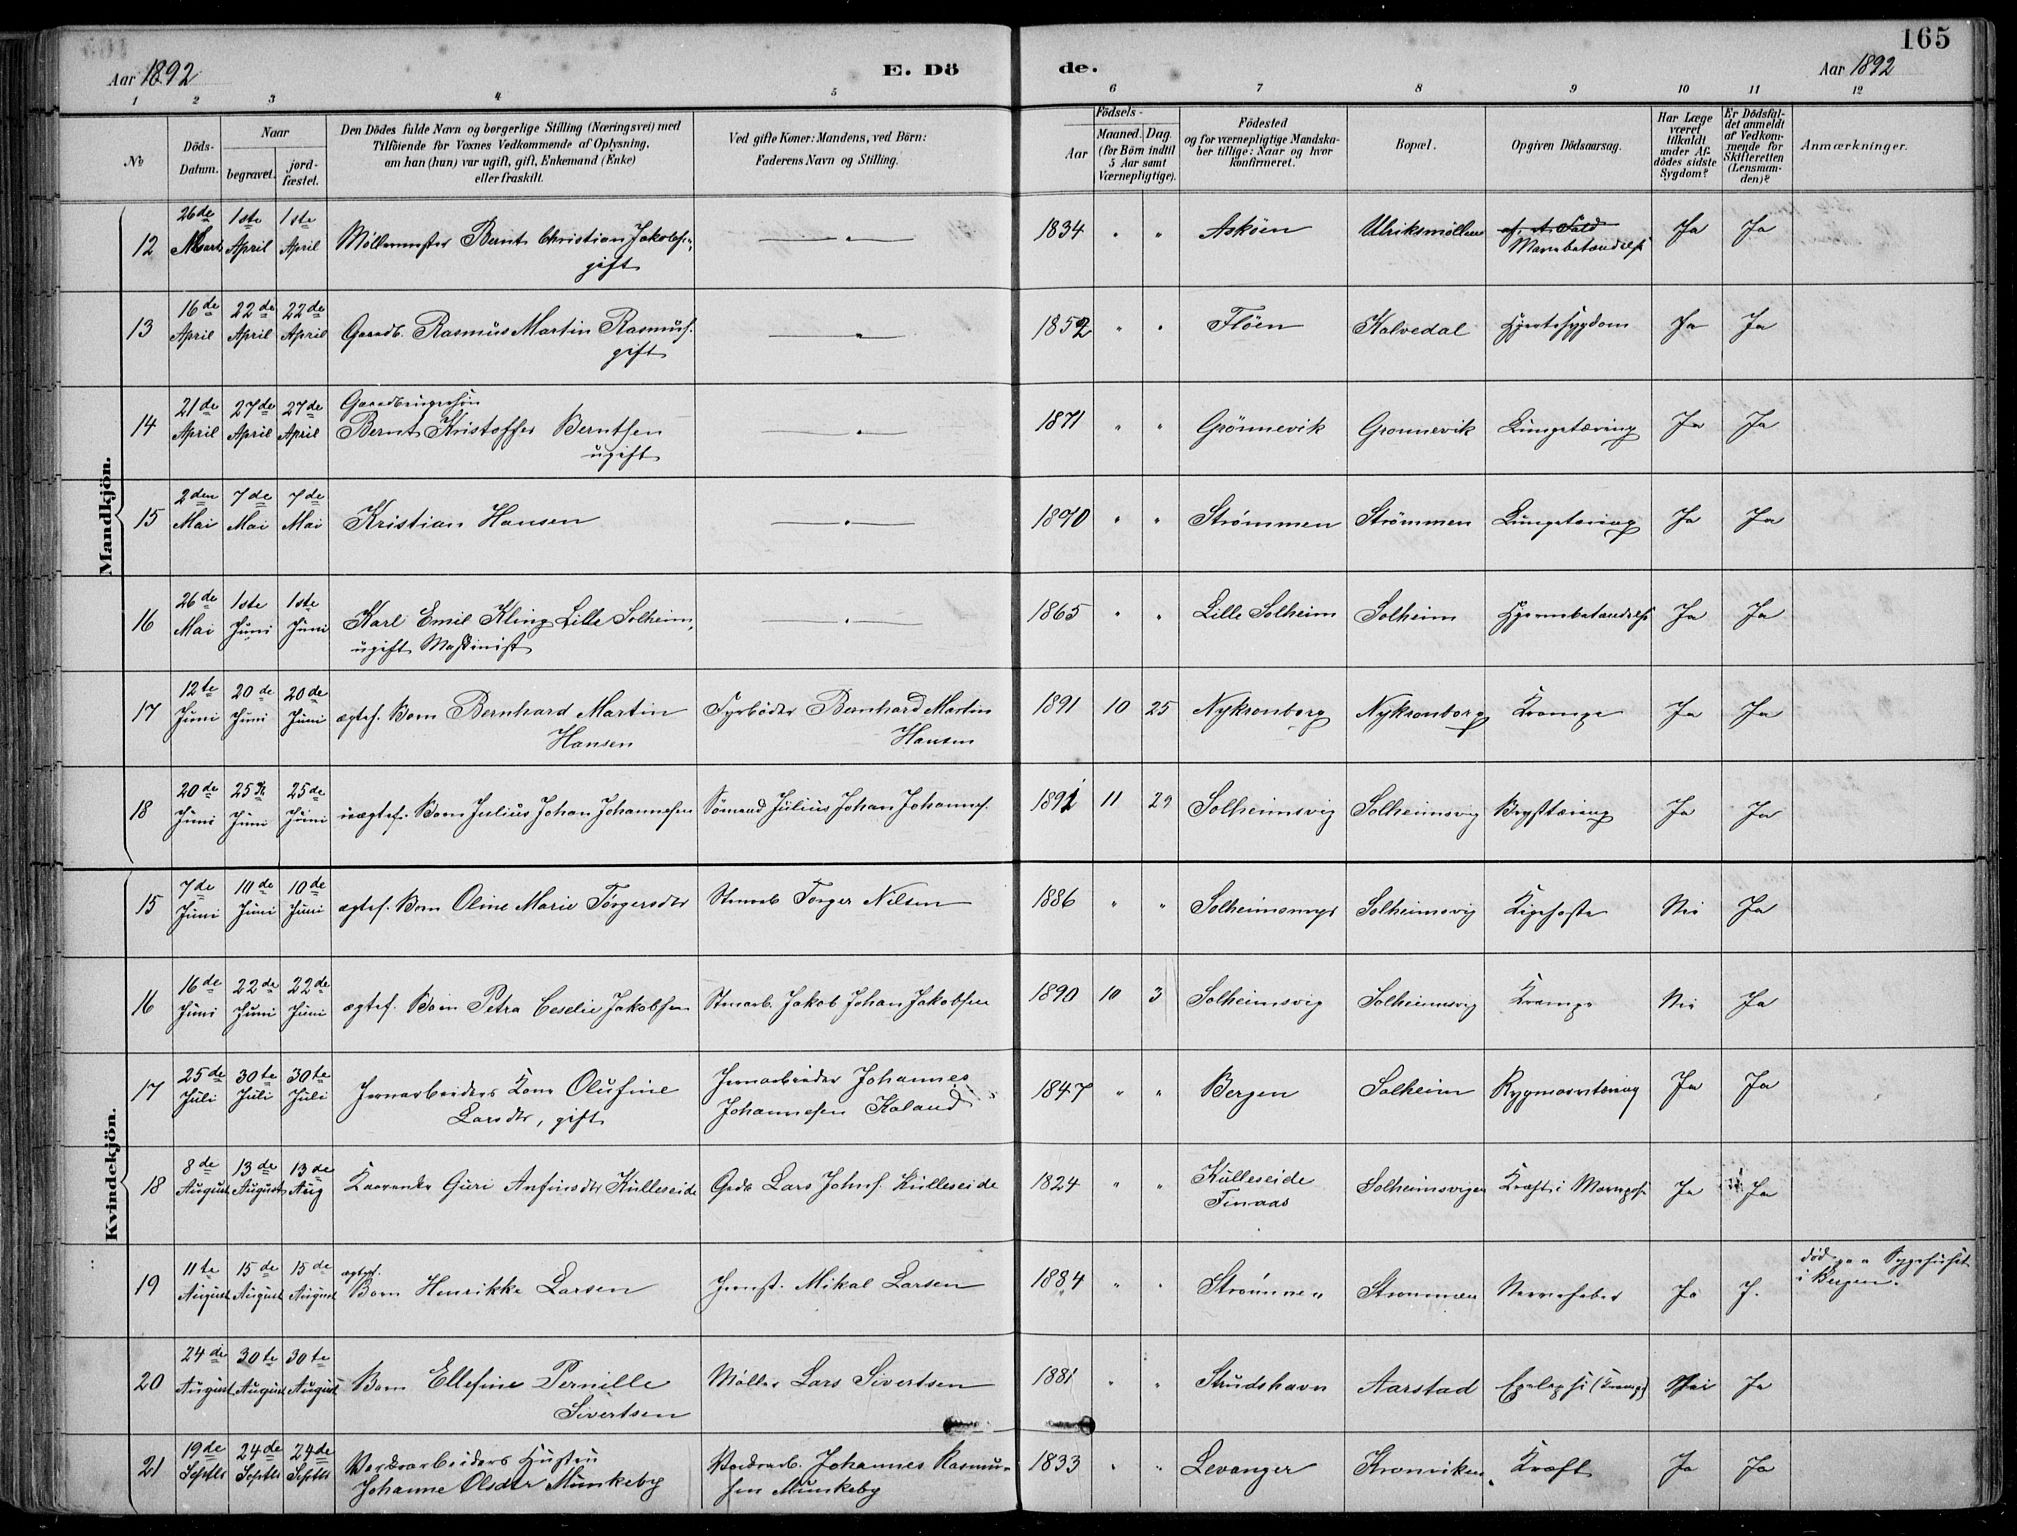 165
Aar 1892
E. Dö de.
Aar 1892
1 2 3 4 5 6 7 8 9 10 11 12
No
Döds-Datum.
Naar
begravet.
jord-fæstet.
Den Dödes fulde Navn og borgerlige Stilling (Næringsvei) med
Tilföiende for Voxnes Vedkommende af Oplysning,
om han (hun) var ugift, gift, Enkemand (Enke)
eller fraskilt.
Ved gifte Koner: Mandens, ved Börn:
Faderens Navn og Stilling.
Födsels-
Aar
Maaned. Dag.
(for Börn indtil
5 Aar samt
Værnepligtige).
Födested
og for værnepligtige Mandska-
ber tillige: Naar og hvor
konfirmeret.
Bopæl.
Opgiven Dödsaarsag.
Har Læge
været
tilkaldt
under Af-
dödes sidste
Sygdom?
Er Dödsfal-
det anmeldt
af Vedkom-
mende for
Skifteretten
(Lensman-
den)?
Anmærkninger.
Mandkjön.
12 26de Marts 1ste April 1ste April Møllermester Bernt Christian Jakobs., gift — " — 1834 " " Askøen Ulriksmøllen Mavebetændelse Ja Ja
13 16de April 22de April 22de April Gaardb. Rasmus Martin Rasmus. gift — " — 1852 " " Fløen Kalvedal Hjertesygdom Ja Ja
14 21de April 27de April 27de April Gaardbrugersøn Bernt Kristoffer Berntsen ugift — " — 1871 " " Grönnevik Gronnevik Lungetæring Ja Ja
15 2den Mai 7de Mai 7de Mai Kristian Hansen — " — 1890 " " Strømmen Strømmen Lungetæring Ja Ja
16 26de Mai 1ste Juni 1ste Juni Karl Emil Kling Lille Solheim, ugift Maskinist — " — 1865 " " Lille Solheim Solheim Hjernebetændelse Ja Ja
17 12te Juni 20de Juni 20de Juni ægtef. Barn Bernhard Martin Hansen Fyrbøder Bernhard Martin Hansen 1891 10 25 Nykronborg Nykronborg Krampe Ja Ja
18 20de Juni 25de Juni 25de Juni uægtef. Barn Julius Johan Johannesen Sømand Julius Johan Johannes. 1891 11 29 Solheimsvig Solheimsvig Brysttæring Ja Ja
Kvindekjön.
15 7de Juni 10de Juni 10de Juni ægtef. Barn Oline Marie Torgersdtr Stenarb Torger Nilsen 1886 " " Solheimsvig Solheimsvig Kighoste Nei Ja
16 16de Juni 22de Juni 22de Juni ægtef. Barn Petra Ceselie Jakobsen Stenarb. Jakob Johan Jakobsen 1890 10 3 Solheimsvig Solheimsvig Krampe Nei Ja
17 25de Juli 30te Juli 30te Juli Jernarbeiders Kone Olufine Larsdtr, gift Jernarbeider Johannes Johannesen Kaland 1847 " " Bergen Solheim Rygmarvstæring Ja Ja
18 8de August 13de August 13de Aug Guri Anfinsdtr Kulleseide Gdb. Lars Johns. Kulleseide 1824 " " Kulleseide Finaas Solheimsvigen Kræft i Ja Ja
19 11te August 15de August 15de August ægtef. Barn Henrikke Larsen Jernst. Mikal Larsen 1884 " " Strømmen Strømmen Nervefeber Ja J. død paa Sygehuset i Bergen.
20 24de August 30te August 30te August Barn Ellefine Pernille Sivertsen Møller Lars Sivertsen 1881 " " Strudshavn Aarstad Epelepsi (Krampe) Nei Ja
21 19de Septbr 24de Septbr 24de Septbr Værksarbeiders Hustru Johanne Olsdtr Munkeby Værksarb. Johannes Rasmussen Munkeby 1833 " " Levanger Kronviken Kræft Ja Ja